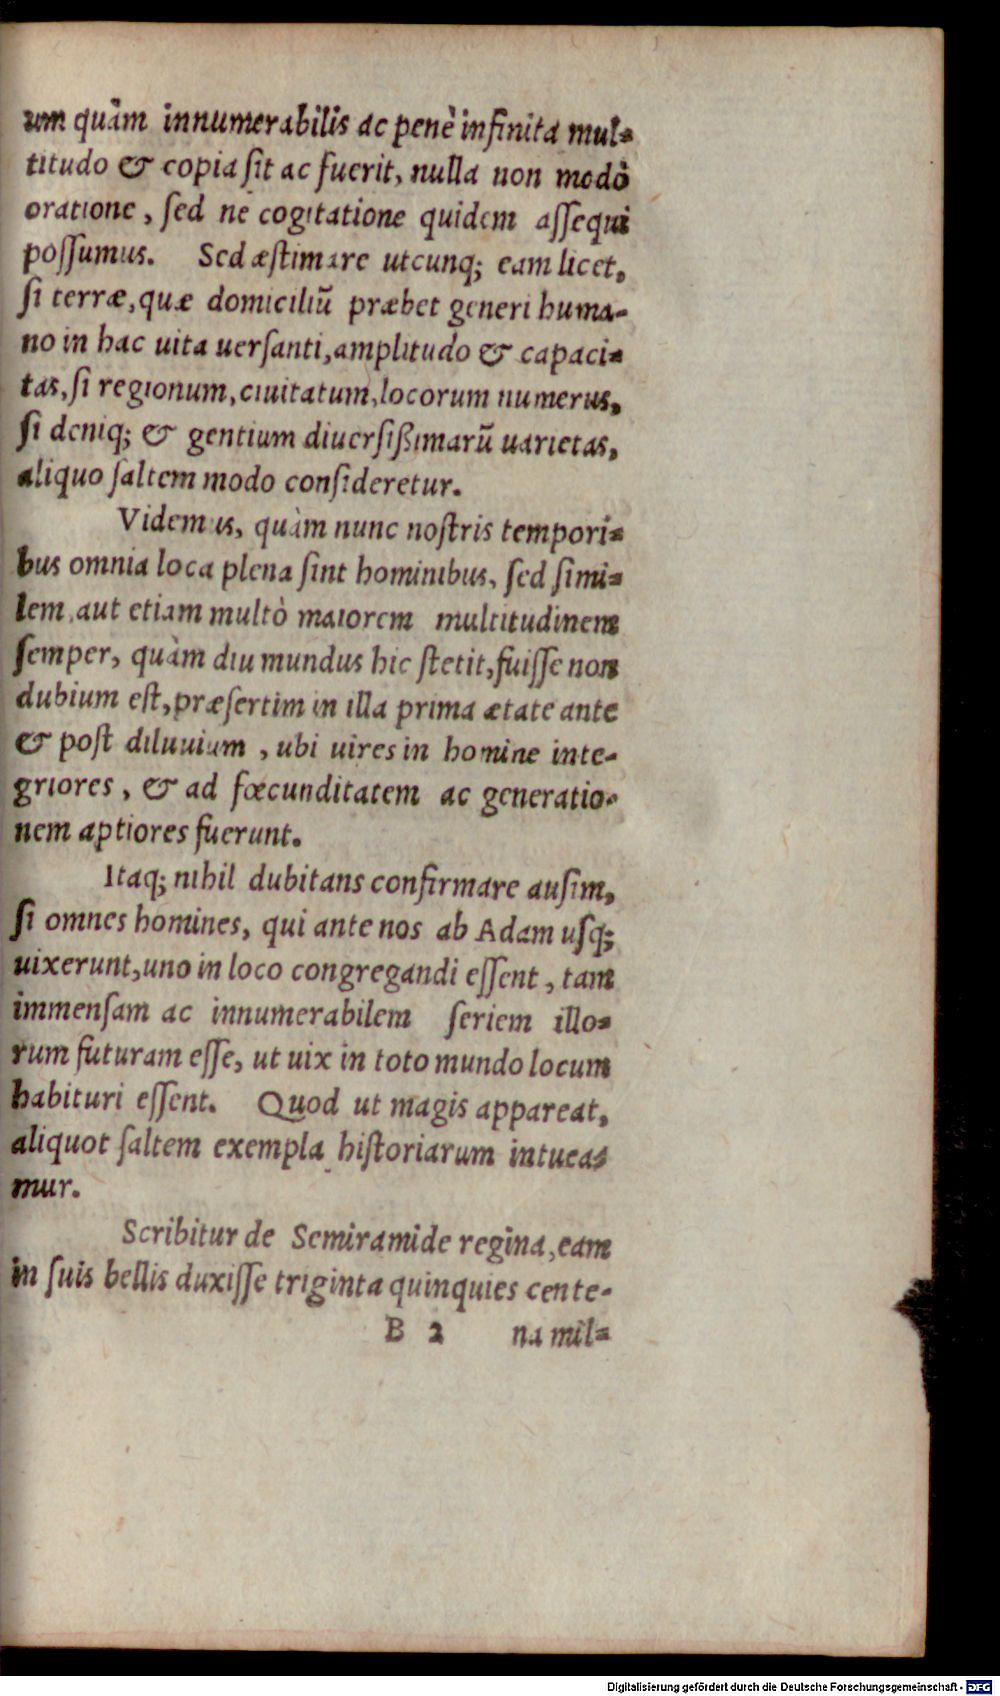 um quàm innumerabilis ac penè infinita mul-
titudo & copia ſit ac fuerit, nulla non modò
oratione, ſed ne cogitatione quidem aſſequi
poſſumus. Sed æſtimare utcunq; eam licet,
ſi terræ, quæ domiciliũ præbet generi huma-
no in hac uita uerſanti, amplitudo & capaci-
tas, ſi regionum, ciuitatum, locorum numerus,
ſi deniq; & gentium diuerſißimarũ uarietas,
aliquo ſaltem modo conſideretur.
Videmus, quàm nunc noſtris tempori-
bus omnia loca plena ſint hominibus, ſed ſimi-
lem aut etiam multò maiorem multitudinem
ſemper, quàm diu mundus hic ſtetit, fuiſſe non
dubium eſt, præſertim in illa prima ætate ante
& poſt diluuium, ubi uires in homine inte-
griores, & ad fœcunditatem ac generatio-
nem aptiores fuerunt.
Itaq; nihil dubitans confirmare auſim,
ſi omnes homines, qui ante nos ab Adam uſq;
uixerunt, uno in loco congregandi eſſent, tam
immenſam ac innumerabilem ſeriem illo-
rum futuram eſſe, ut uix in toto mundo locum
habituri eſſent. Quod ut magis appareat,
aliquot ſaltem exempla hiſtoriarum intuea-
mur.
Scribitur de Semiramide regina, eam
in ſuis bellis duxiſſe triginta quinquies cente-
B 2 na mil-
Digitalisierung gefördert durch die Deutsche Forschungsgemeinschaft - DFG